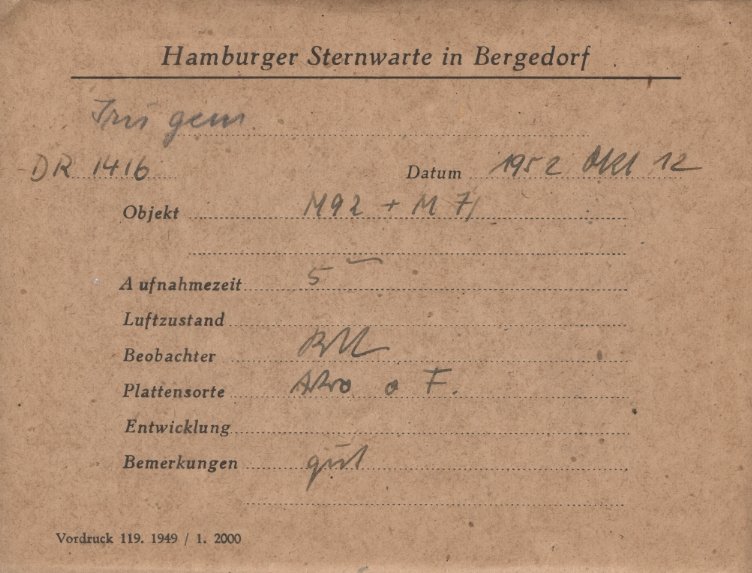 Hamburger Sternwarte in Bergedorf
Iris gem
DR 1416 Datum 1952 Okt 12
Objekt M92 + M 71
Aufnahmezeit 5
Luftzustand
Beobachter
Plattensorte Astro o F.
Entwicklung
Bemerkungen gut
Vordruck 119. 1949 / 1. 2000